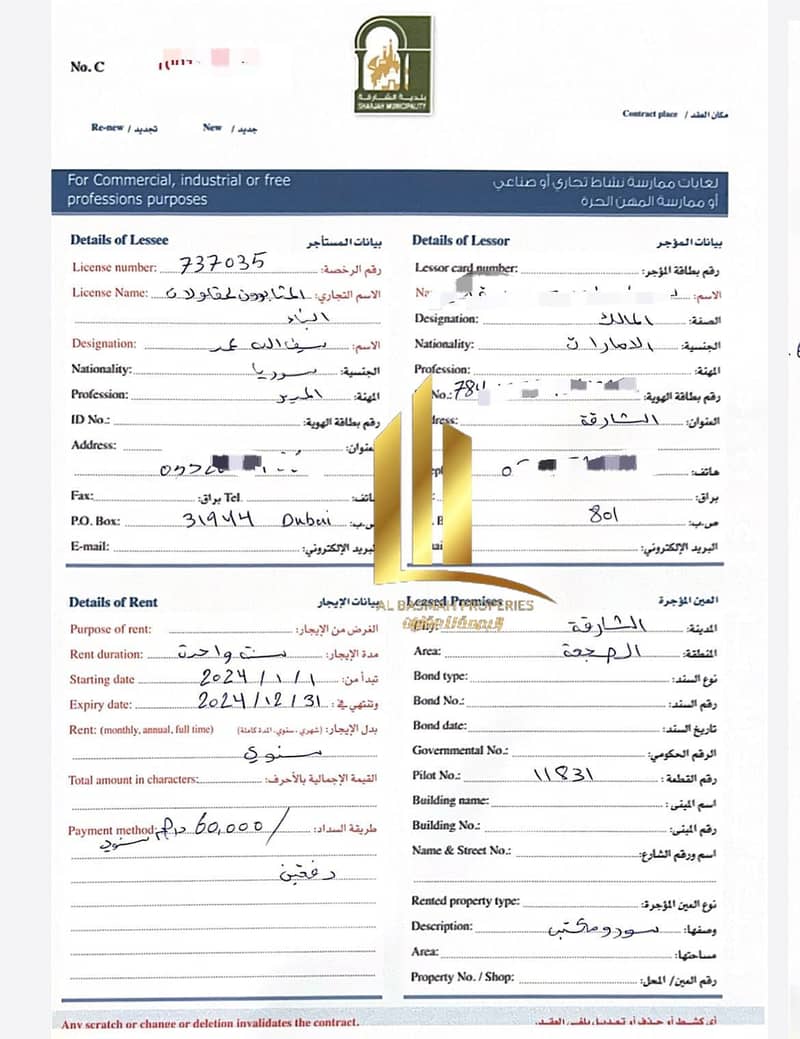 No. C
بلدية الشارقة
SHARJAH MUNICIPALITY
Contract place / مكان العقد
Re-new / تجديد New / جديد
For Commercial, industrial or free professions purposes
لغايات ممارسة نشاط تجاري أو صناعي
أو ممارسة المهن الحرة
Details of Lessee بيانات المستأجر
License number: 737035 رقم الرخصة:
License Name: لمقاولات الاسم التجاري:
البناء
Designation: عمر الاسم:
Nationality: سوريا الجنسية:
Profession: المدير المهنة:
ID No.: رقم بطاقة الهوية:
Address: عنوان:
Fax: براق: Tel هاتف:
P.O. Box: 31944 Dubai ص.ب:
E-mail: البريد الإلكتروني:
Details of Lessor بيانات المؤجر
Lessor card number: رقم بطاقة المؤجر:
الاسم:
Designation: المالك الصفة:
Nationality: الامارات الجنسية:
Profession: المهنة:
No.: 784 رقم بطاقة الهوية:
الشارقة العنوان:
هاتف:
براق:
801 ص.ب:
البريد الإلكتروني:
AL BASMAH PROPERIES
Details of Rent بيانات الإيجار
Purpose of rent: الغرض من الإيجار:
Rent duration: سنة واحدة مدة الإيجار:
Starting date 2024/1/1 تبدأ من:
Expiry date 2024/12/31 وتنتهي في:
Rent: (monthly, annual, full time) بدل الإيجار: (شهري، سنوي، المدة كاملة)
سنوي
Total amount in characters: القيمة الإجمالية بالأحرف:
Payment method: 60,000 درهم طريقة السداد:
سنوي
دفعتين
Leased Premises العين المؤجرة
City: الشارقة المدينة:
Area: الصجعة المنطقة:
Bond type: نوع السند:
Bond No.: رقم السند:
Bond date: تاريخ السند:
Governmental No.: الرقم الحكومي:
Pilot No.: 11831 رقم القطعة:
Building name: اسم المبنى:
Building No.: رقم المبنى:
Name & Street No.: اسم ورقم الشارع:
Rented property type: نوع العين المؤجرة:
Description: سور ومكتب وصفها:
Area: مساحتها:
Property No. / Shop: رقم العين/ المحل:
Any scratch or change or deletion invalidates the contract.
أي كشط أو حذف أو تعديل يلغي العقد.